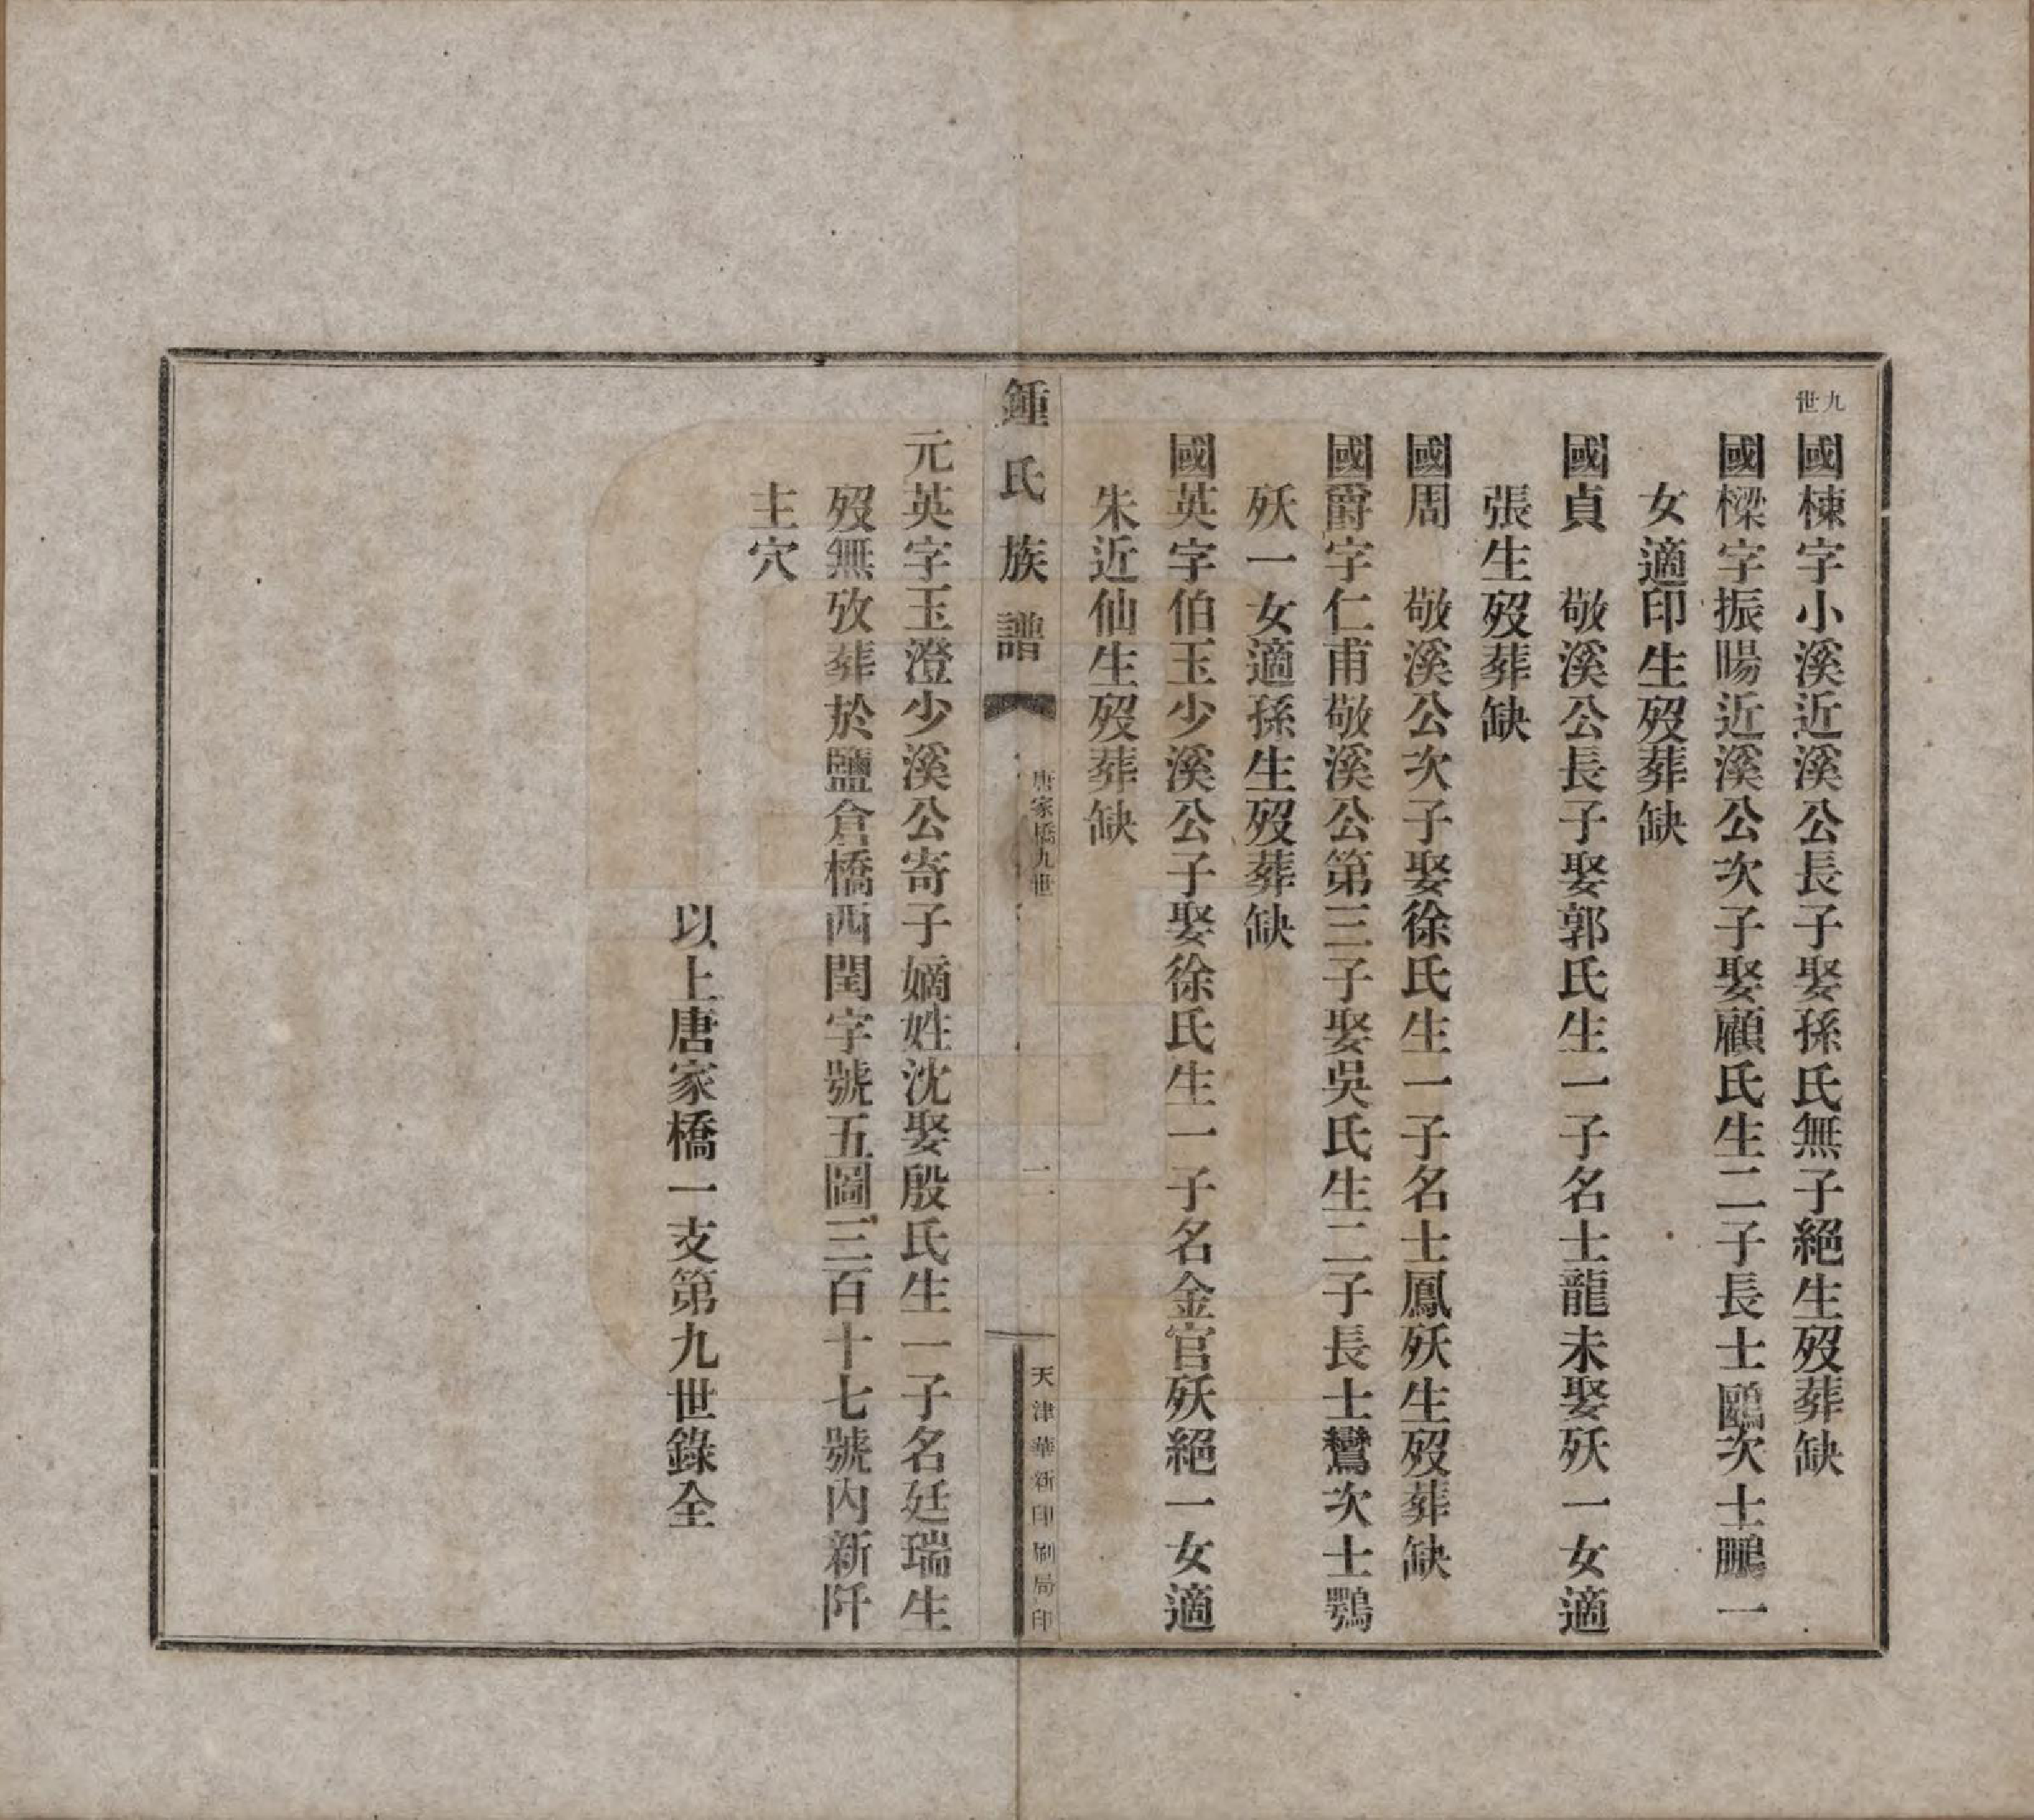 九世
國棟字小溪近溪公長子娶孫氏無子絕生歿葬缺
國樑字振暘近溪公次子娶顧氏生二子長士鷗次士鵬一
女適印生歿葬缺
國貞　敬溪公長子娶郭氏生一子名士龍未娶殀一女適
張生歿葬缺
國周　敬溪公次子娶徐氏生一子名士鳳殀生歿葬缺
國爵字仁甫敬溪公第三子娶吳氏生二子長士鸞次士鶚
殀一女適孫生歿葬缺
國英字伯玉少溪公子娶徐氏生一子名金官殀絕一女適
朱近仙生歿葬缺
鍾氏族譜
唐家橋九世
二
天津華新印刷局印
元英字玉澄少溪公寄子嫡姓沈娶殷氏生一子名廷瑞生
歿無攷葬於鹽倉橋西閏字號五圖三百十七號內新阡
主穴
以上唐家橋一支第九世錄全